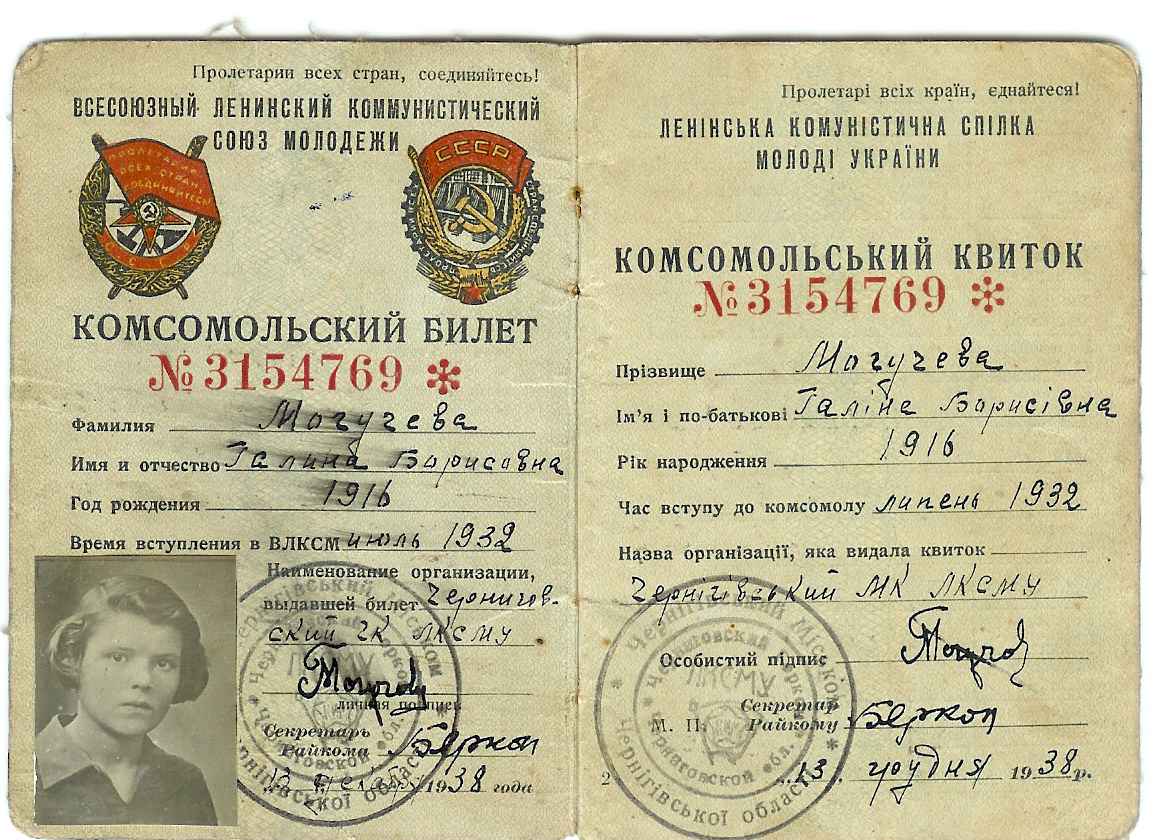 Пролетарии всех стран, соединяйтесь!
ВСЕСОЮЗНЫЙ ЛЕНИНСКИЙ КОММУНИСТИЧЕСКИЙ
СОЮЗ МОЛОДЕЖИ
ПРОЛЕТАРИИ
ВСЕХ СТРАН,
СОЕДИНЯЙТЕСЬ
СССР
СССР
КОМСОМОЛЬСКИЙ БИЛЕТ
№ 3154769 *
Фамилия Могучева
Имя и отчество Галина Борисовна
Год рождения 1916
Время вступления в ВЛКСМ июль 1932
Наименование организации,
выдавшей билет Черниговский
ский ГК ЛКСМУ
личная подпись
Секретарь
Райкома
13 декабр 1938 года
Пролетарі всіх країн, єднайтеся!
ЛЕНІНСЬКА КОМУНІСТИЧНА СПІЛКА
МОЛОДІ УКРАЇНИ
КОМСОМОЛЬСЬКИЙ КВИТОК
№ 3154769 *
Прізвище Могучева
Ім'я і по-батькові Галіна Борисівна
Рік народження 1916
Час вступу до комсомолу липень 1932
Назва організації, яка видала квиток
Чернігівський МК ЛКСМУ
Особистий підпис
Секретар
М. П. Райкому
13 грудня 1938 р.
Чернігівський міськом
Чернігівської області
ЛКСМУ